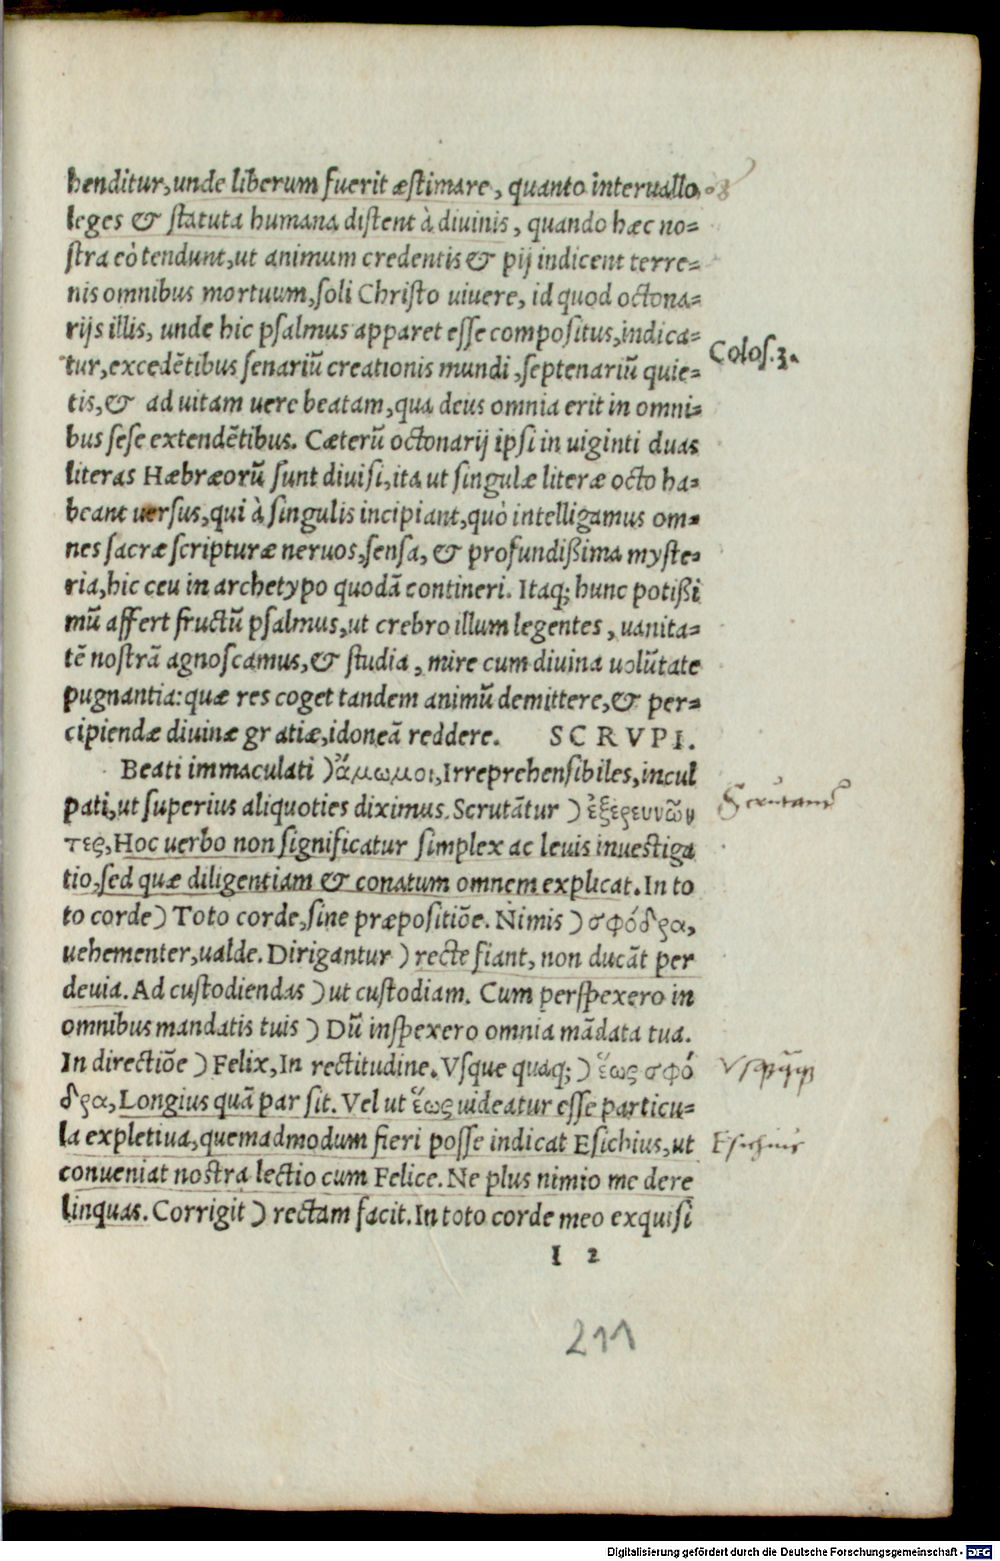 henditur, unde liberum fuerit æstimare, quanto interuallo
leges & statuta humana distent à diuinis, quando hæc no=
stra eò tendunt, ut animum credentis & pij indicent terre=
nis omnibus mortuum, soli Christo uiuere, id quod octona=
rijs illis, unde hic psalmus apparet esse compositus, indica=
tur, excedētibus senariū creationis mundi, septenariū quie=
Colos. 3.
tis, & ad uitam uere beatam, qua deus omnia erit in omni=
bus sese extendētibus. Cæterū octonarij ipsi in uiginti duas
literas Hæbræorū sunt diuisi, ita ut singulæ literæ octo ha=
beant uersus, qui à singulis incipiant, quò intelligamus om=
nes sacræ scripturæ neruos, sensa, & profundißima myste=
ria, hic ceu in archetypo quodā contineri. Itaq; hunc potißi
mū affert fructū psalmus, ut crebro illum legentes, uanita=
tē nostrā agnoscamus, & studia, mire cum diuina uolūtate
pugnantia: quæ res coget tandem animū demittere, & per=
cipiendæ diuinæ gratiæ, idoneā reddere. SCRVPI.
Beati immaculati ) ἄμωμοι, Irreprehensibiles, incul
pati, ut superius aliquoties diximus. Scrutātur ) ἐξερευνῶν
τες, Hoc uerbo non significatur simplex ac leuis inuestiga
tio, sed quæ diligentiam & conatum omnem explicat. In to
to corde ) Toto corde, sine præpositiōe. Nimis ) σφόδρα,
uehementer, ualde. Dirigantur ) recte fiant, non ducāt per
deuia. Ad custodiendas ) ut custodiam. Cum perspexero in
omnibus mandatis tuis ) Dū inspexero omnia mādata tua.
In directiōe ) Felix, In rectitudine. Vsque quaq; ) ἕως σφό
δρα, Longius quā par sit. Vel ut ἕως uideatur esse particu=
la expletiua, quemadmodum fieri posse indicat Esichius, ut
Esichius
conueniat nostra lectio cum Felice. Ne plus nimio me dere
linquas. Corrigit ) rectam facit. In toto corde meo exquisi
I 2
211
Digitalisierung gefördert durch die Deutsche Forschungsgemeinschaft - DFG